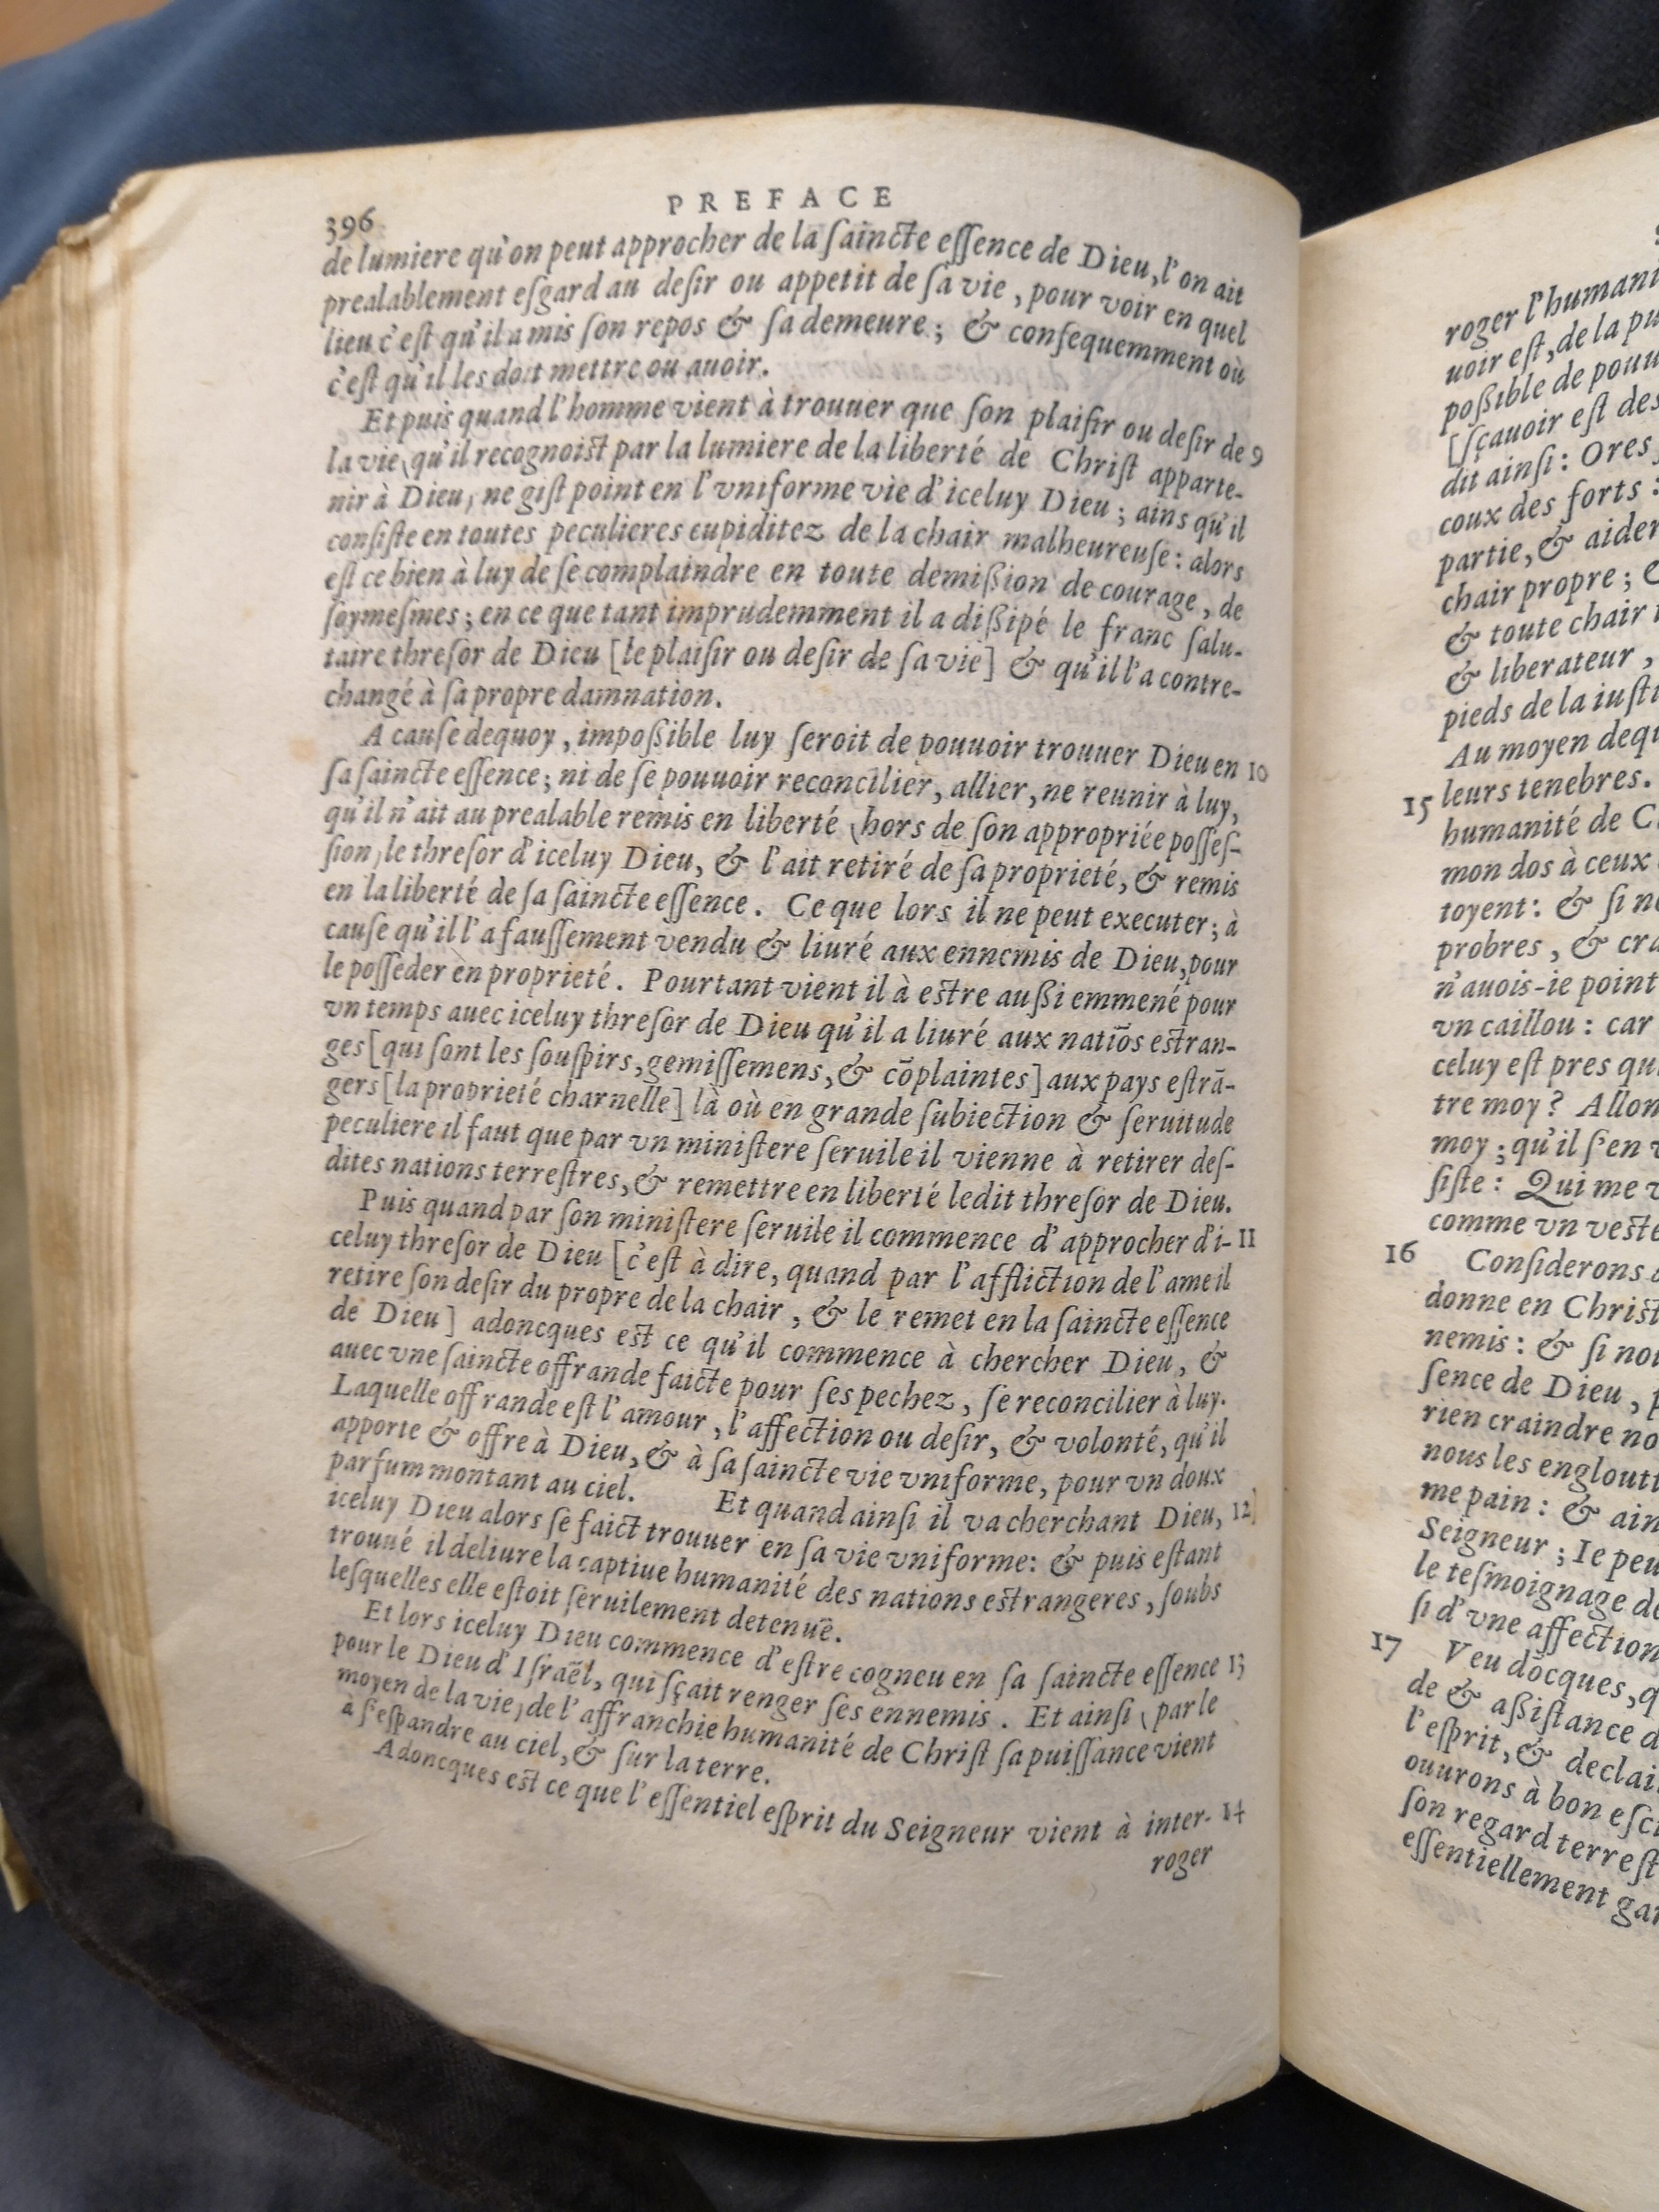 396
PREFACE
de lumiere qu'on peut approcher de la ſaincte eſſence de Dieu, l'on ait
prealablement eſgard au deſir ou appetit de ſa vie, pour voir en quel
lieu c'eſt qu'il a mis ſon repos & ſa demeure; & conſequemment où
c'eſt qu'il les doit mettre ou auoir.
Et puis quand l'homme vient à trouuer que ſon plaiſir ou deſir de 9
la vie (qu'il recognoiſt par la lumiere de la liberté de Chriſt apparte-
nir à Dieu) ne giſt point en l'vniforme vie d'iceluy Dieu; ains qu'il
conſiſte en toutes peculieres cupiditez de la chair malheureuſe: alors
eſt ce bien à luy de ſe complaindre en toute demiſsion de courage, de
ſoymeſmes; en ce que tant imprudemment il a diſsipé le franc ſalu-
taire threſor de Dieu [le plaiſir ou deſir de ſa vie] & qu'il l'a contre-
changé à ſa propre damnation.
A cauſe dequoy, impoſsible luy ſeroit de pouuoir trouuer Dieu en 10
ſa ſaincte eſſence; ni de ſe pouuoir reconcilier, allier, ne reunir à luy,
qu'il n'ait au prealable remis en liberté (hors de ſon appropriée poſſeſ-
ſion) le threſor d'iceluy Dieu, & l'ait retiré de ſa proprieté, & remis
en la liberté de ſa ſaincte eſſence. Ce que lors il ne peut executer; à
cauſe qu'il l'a fauſſement vendu & liuré aux ennemis de Dieu, pour
le poſſeder en proprieté. Pourtant vient il à eſtre auſsi emmené pour
vn temps auec iceluy threſor de Dieu qu'il a liuré aux natiōs eſtran-
ges [qui ſont les ſouſpirs, gemiſſemens, & cōplaintes] aux pays eſtrā-
gers [la proprieté charnelle] là où en grande ſubiection & ſeruitude
peculiere il faut que par vn miniſtere ſeruile il vienne à retirer deſ-
dites nations terreſtres, & remettre en liberté ledit threſor de Dieu.
Puis quand par ſon miniſtere ſeruile il commence d'approcher d'i- 11
celuy threſor de Dieu [c'eſt à dire, quand par l'affliction de l'ame il
retire ſon deſir du propre de la chair, & le remet en la ſaincte eſſence
de Dieu] adoncques eſt ce qu'il commence à chercher Dieu, &
auec vne ſaincte offrande faicte pour ſes pechez, ſe reconcilier à luy.
Laquelle offrande eſt l'amour, l'affection ou deſir, & volonté, qu'il
apporte & offre à Dieu, & à ſa ſaincte vie vniforme, pour vn doux
parfum montant au ciel. Et quand ainſi il va cherchant Dieu, 12
iceluy Dieu alors ſe faict trouuer en ſa vie vniforme: & puis eſtant
trouué il deliure la captiue humanité des nations eſtrangeres, ſoubs
leſquelles elle eſtoit ſeruilement detenuë.
Et lors iceluy Dieu commence d'eſtre cogneu en ſa ſaincte eſſence 13
pour le Dieu d'Iſraël, qui ſçait renger ſes ennemis. Et ainſi (par le
moyen de la vie) de l'affranchie humanité de Chriſt ſa puiſſance vient
à s'eſpandre au ciel, & ſur la terre.
Adoncques eſt ce que l'eſſentiel eſprit du Seigneur vient à inter- 14
roger
roger l'humani
uoir eſt, de la pu
poſsible de pouu
[ſçauoir eſt des
dit ainſi: Ores
coux des forts:
partie, & aider
chair propre; &
& toute chair
& liberateur,
pieds de la iuſti
Au moyen dequ
leurs tenebres.
15
humanité de C
mon dos à ceux
toyent: & ſi ne
probres, & cra
n'auois-ie point
vn caillou: car
celuy eſt pres qu
tre moy? Allon
moy; qu'il s'en v
ſiſte: Qui me v
comme vn veſte
16 Conſiderons
donne en Chriſt
nemis: & ſi nou
ſence de Dieu, p
rien craindre no
nous les engloutt
me pain: & ain
Seigneur; Ie peu
le teſmoignage de
ſi d'vne affection
17 Veu dōcques, q
de & aſsiſtance d
l'eſprit, & declai
ouurons à bon eſci
ſon regard terreſt
eſſentiellement gar